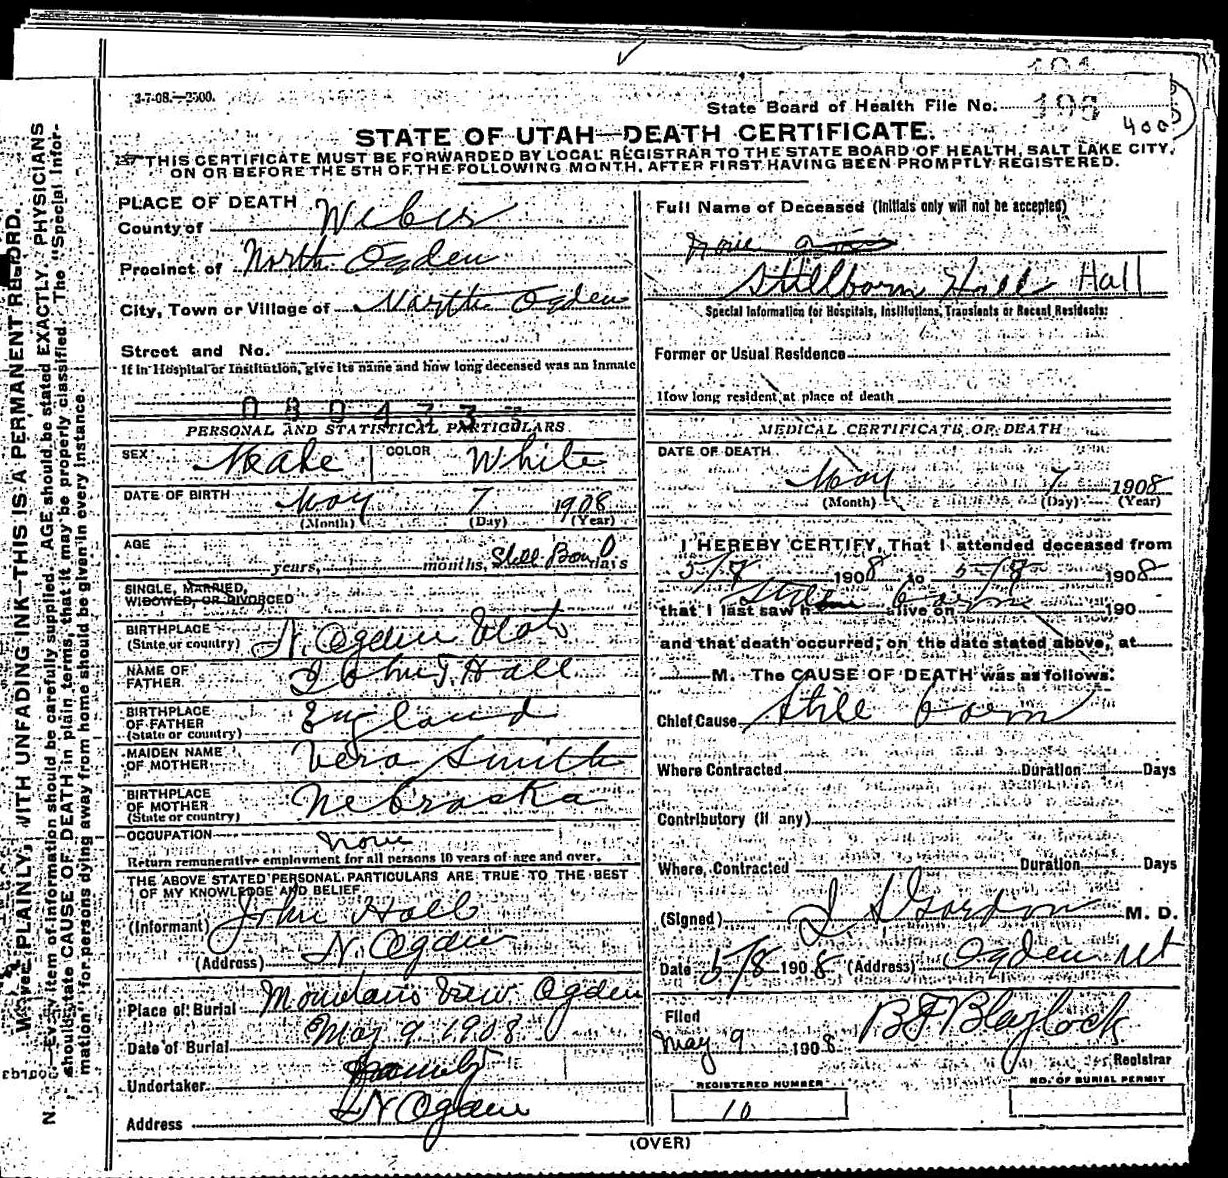 3-7-08.—2500.
State Board of Health File No. 196
400
STATE OF UTAH—DEATH CERTIFICATE.
THIS CERTIFICATE MUST BE FORWARDED BY LOCAL REGISTRAR TO THE STATE BOARD OF HEALTH, SALT LAKE CITY,
ON OR BEFORE THE 5TH OF THE FOLLOWING MONTH, AFTER FIRST HAVING BEEN PROMPTLY REGISTERED.
PLACE OF DEATH
County of Weber
Precinct of North Ogden
City, Town or Village of North Ogden
Street and No.
If in Hospital or Institution, give its name and how long deceased was an inmate
PERSONAL AND STATISTICAL PARTICULARS
SEX Male COLOR White
DATE OF BIRTH May 7 1908
(Month) (Day) (Year)
AGE years, months, Still Born days
SINGLE, MARRIED,
WIDOWED, OR DIVORCED
BIRTHPLACE
(State or country) N. Ogden Utah
NAME OF
FATHER John T. Hall
BIRTHPLACE
OF FATHER
(State or country) England
MAIDEN NAME
OF MOTHER Vera Smith
BIRTHPLACE
OF MOTHER
(State or country) Nebraska
OCCUPATION None
Return remunerative employment for all persons 10 years of age and over.
THE ABOVE STATED PERSONAL PARTICULARS ARE TRUE TO THE BEST
OF MY KNOWLEDGE AND BELIEF
(Informant) John Hall
(Address) N. Ogden
Place of Burial Mountain View Ogden
Date of Burial May 9 1908
Undertaker Family
Address N Ogden
Full Name of Deceased (Initials only will not be accepted)
None
Stillborn Hall Hall
Special Information for Hospitals, Institutions, Transients or Recent Residents:
Former or Usual Residence
How long resident at place of death
MEDICAL CERTIFICATE OF DEATH
DATE OF DEATH
May 7 1908
(Month) (Day) (Year)
I HEREBY CERTIFY, That I attended deceased from
5/7 1908 to 5/8 1908
that I last saw h alive on 190
Still born
and that death occurred, on the date stated above, at
M. The CAUSE OF DEATH was as follows:
Chief Cause Still born
Where Contracted Duration Days
Contributory (if any)
Where Contracted Duration Days
(Signed) Gordon M. D.
Date 5/8 1908 (Address) Ogden Ut
Filed
May 9 1908 B F Blaylock
Registrar
REGISTERED NUMBER
10
NO. OF BURIAL PERMIT
(OVER)
PLAINLY, WITH UNFADING INK—THIS IS A PERMANENT RECORD.
N. —Every item of information should be carefully supplied. AGE should be stated EXACTLY. PHYSICIANS
should state CAUSE OF DEATH in plain terms, that it may be properly classified. The "Special Infor-
mation" for persons dying away from home should be given in every instance.